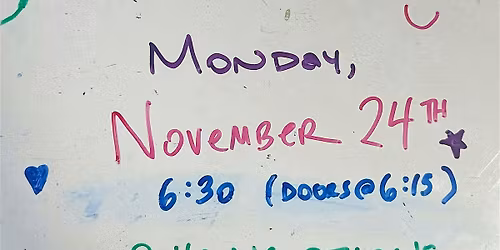 Monday,
November 24TH
6:30 (Doors@6:15)